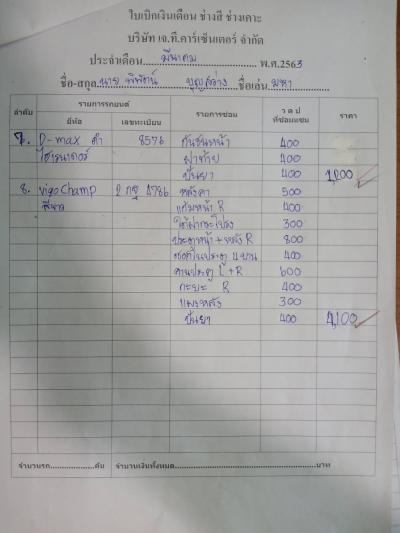 ใบเบิกเงินเดือน ช่างสี ช่างเคาะ
บริษัท เจ.ที.คาร์เซ็นเตอร์ จำกัด
ประจำเดือน มีนาคม พ.ศ.2563
ชื่อ-สกุล นาย พิพัฒน์ บุญสว่าง ชื่อเล่น มหา
ลำดับ รายการรถยนต์ รายการซ่อม ว ด ป ที่ซ่อมแซม ราคา
ยี่ห้อ เลขทะเบียน
7. D-max ดำ 8576 กันชนหน้า 400
ฝาท้าย 400
ปั่นยา 400 1,200
8. vigo Champ 2 กฐ 4786 หลังคา 500
แก้มหน้า R 400
ใต้ฝากระโปรง 300
ประตูหน้า + หลัง R 800
ประตู 4 บาน 400
ประตู L + R 600
กะบะ R 400
แผงหลัง 300
ปั่นยา 400 4,100
จำนวนรถ คัน จำนวนเงินทั้งหมด บาท